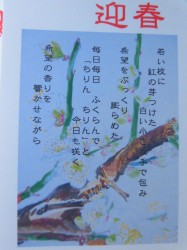 迎春
若い枝に
紅の芽つけた
白い小 子で包み
希望をぷっくり
膨らめた
毎日毎日 ふくらんで
「ちりん ちりん」と
今日も咲く
希望の香りを
響かせながら